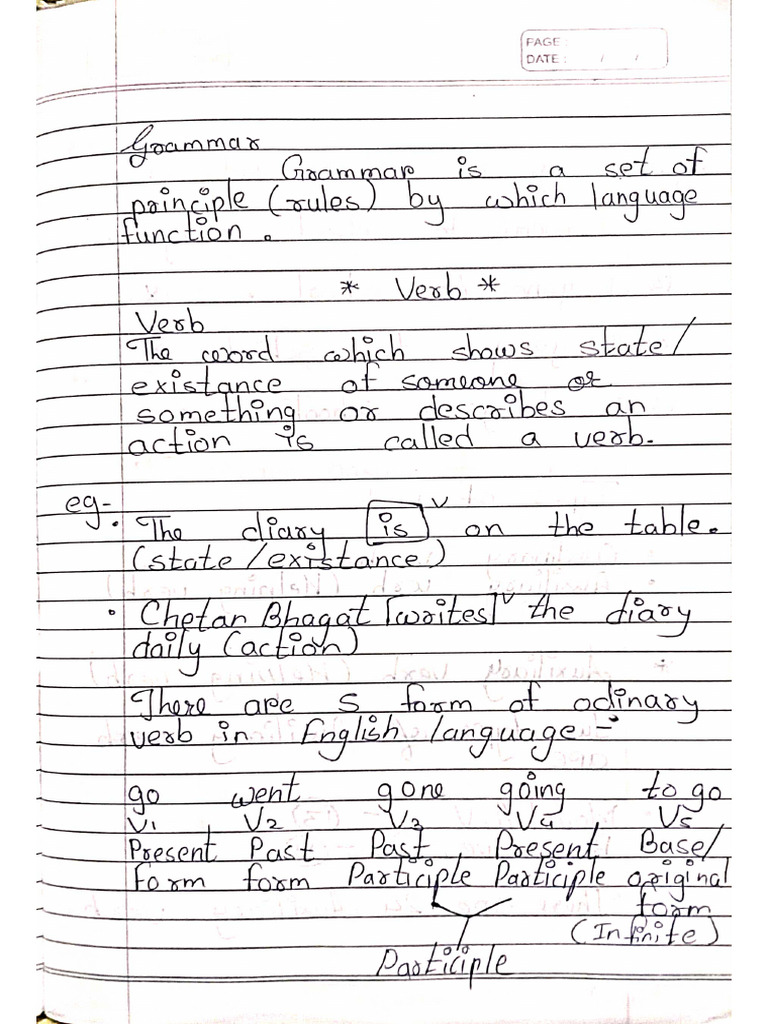 PAGE :
DATE : / /
Grammar
Grammar is a set of
principle (rules) by which language
function.
* Verb *
Verb
The word which shows state/
existance of someone or
something or describes an
action is called a verb.
eg- • The diary [is] v on the table.
(state/existance)
• Chetan Bhagat [writes] v the diary
daily (action)
There are 5 form of odinary
verb in English language -
go went gone going to go
V1 V2 V3 V4 V5
Present Past Past Present Base/
Form form Participle Participle original
form
(Infinite)
Participle